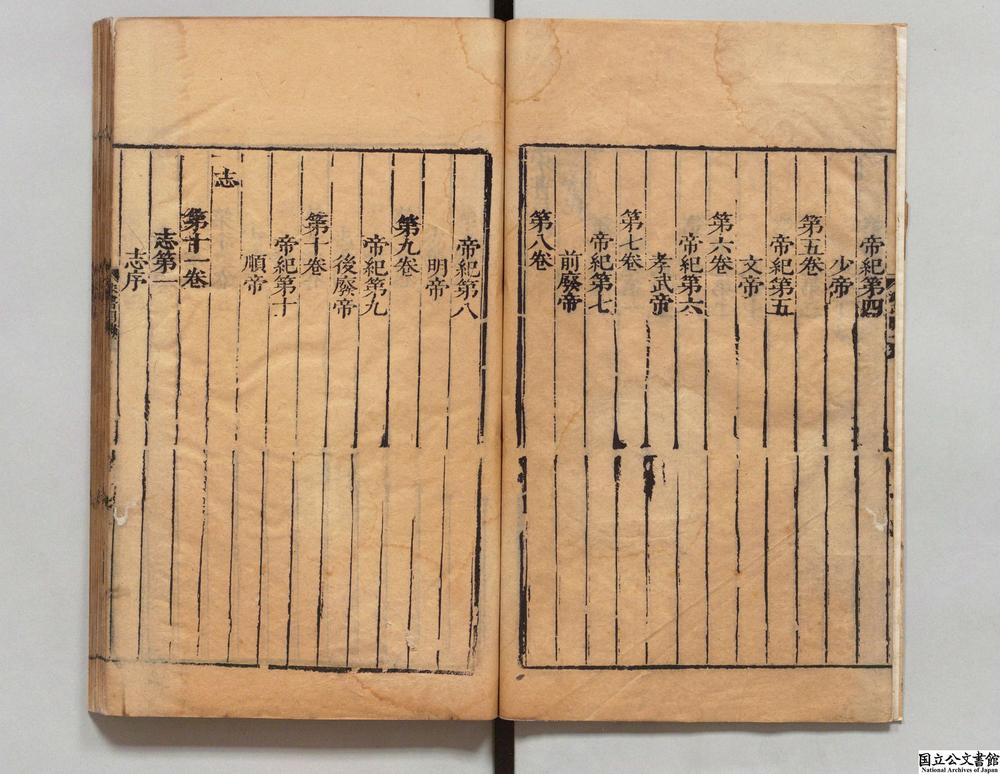 帝紀第四
少帝
第五卷
帝紀第五
文帝
第六卷
帝紀第六
孝武帝
第七卷
帝紀第七
前廢帝
第八卷
帝紀第八
明帝
第九卷
帝紀第九
後廢帝
第十卷
帝紀第十
順帝
志
第十一卷
志第一
志序
国立公文書館
National Archives of Japan